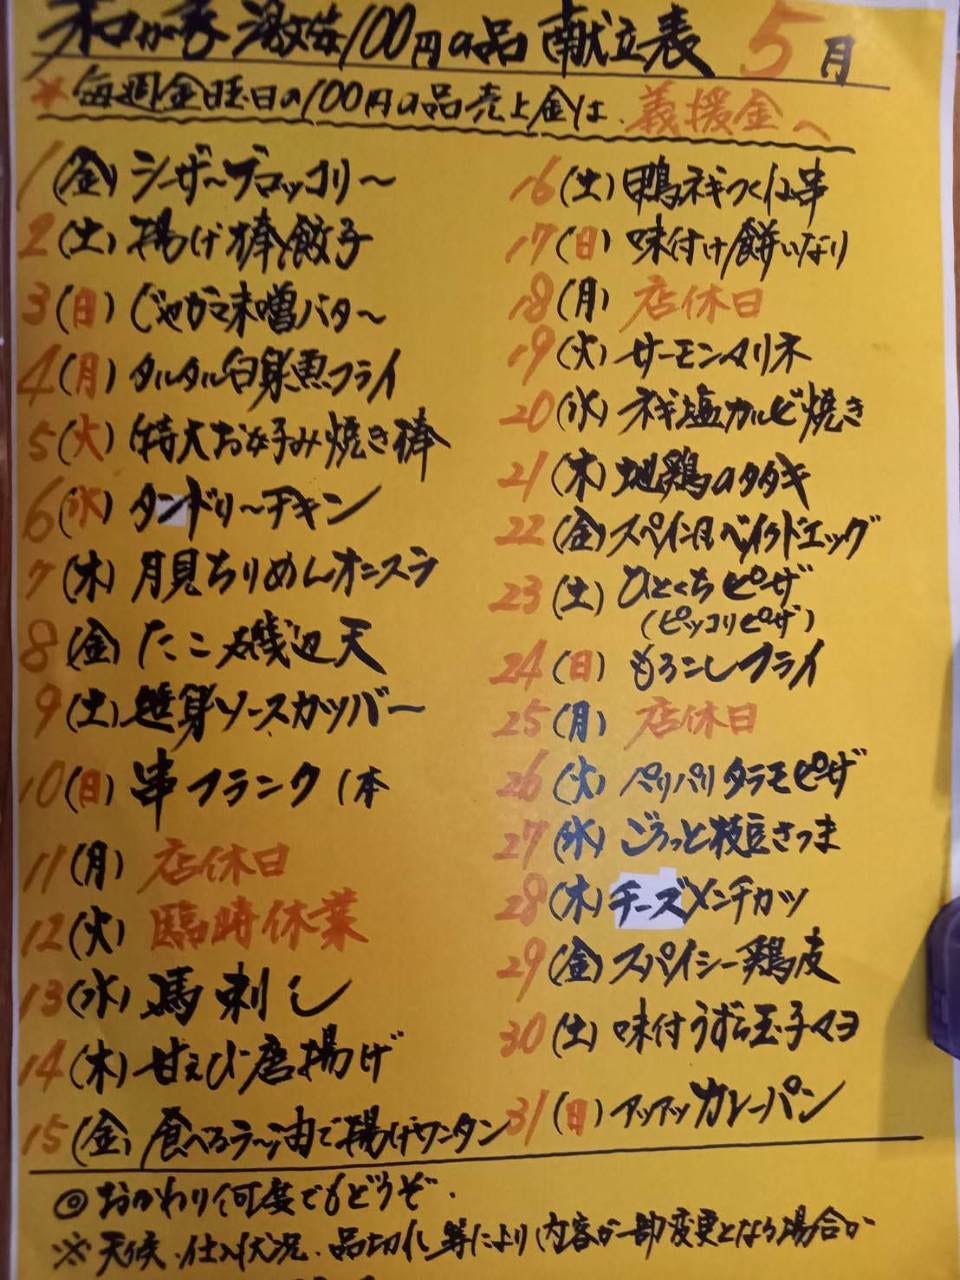 和が家 激安100円の品 献立表 5月
*毎週金曜日の100円の品売上金は、義援金へ
1(金)シーザーブロッコリー
2(土)揚げ棒餃子
3(日)じゃがマ味噌バター
4(月)タルタル白身魚フライ
5(火)特大お好み焼き棒
6(水)タンドリーチキン
7(木)月見ちりめんオニスラ
8(金)たこ磯辺天
9(土)身ソースカツバー
10(日)串フランク1本
11(月)店休日
12(火)臨時休業
13(水)馬刺し
14(木)甘えび唐揚げ
15(金)食べるラー油で揚げワンタン
16(土)鴨ネギつくね串
17(日)味付け餅いなり
18(月)店休日
19(火)サーモンマリネ
20(水)ネギ塩カルビ焼き
21(木)地鶏のタタキ
22(金)スペイン風ベイクドエッグ
23(土)ひとくちピザ
(ピッコリピザ)
24(日)もろこしフライ
25(月)店休日
26(火)パリパリタラモピザ
27(水)ごろっと枝豆さつま
28(木)チーズメンチカツ
29(金)スパイシー鶏皮
30(土)味付うずら玉子マヨ
31(日)アツアツカレーパン
◎おかわり何度でもどうぞ.
※天候・仕入状況、品切れ等により内容が一部変更となる場合が